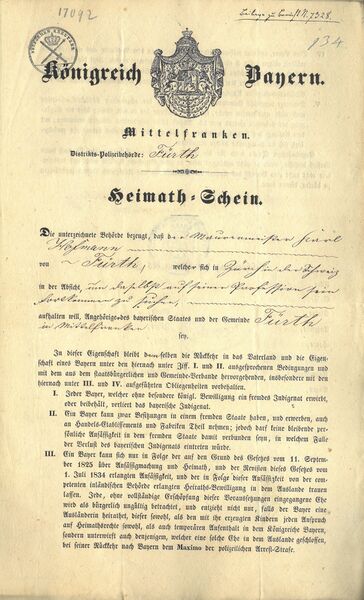 17092
734
Königreich Bayern.
Mittelfranken.
Distrikts-Polizeibehörde: Fürth
Heimath-Schein.
Die unterzeichnete Behörde bezeugt, daß der Maurermeister Karl
Hofmann
von Fürth, welcher sich in Zürich in der Schweiz
in der Absicht, um daselbst auf seiner Profession sein
Fortkommen zu suchen,
aufhalten will, Angehöriger des bayerischen Staates und der Gemeinde Fürth
in Mittelfranken
sey.
In dieser Eigenschaft bleibt demselben die Rückkehr in das Vaterland und die Eigen-
schaft eines Bayern unter den hiernach unter Ziff. I. und II. ausgesprochenen Bedingungen und
mit den aus dem staatsbürgerlichen und Gemeinde-Verbande hervorgehenden, insbesondere mit den
hiernach unter III. und IV. aufgeführten Obliegenheiten vorbehalten.
I. Jeder Bayer, welcher ohne besondere königl. Bewilligung ein fremdes Indigenat erwirbt,
oder beibehält, verliert das bayerische Indigenat.
II. Ein Bayer kann zwar Besitzungen in einem fremden Staate haben, und erwerben, auch
an Handels-Etablissements und Fabriken Theil nehmen; jedoch darf keine bleibende per-
sönliche Ansäßigkeit in dem fremden Staate damit verbunden seyn, in welchem Falle
der Verlust des bayerischen Indigenats eintreten würde.
III. Ein Bayer kann sich nur in Folge der auf den Grund des Gesetzes vom 11. Septem-
ber 1825 über Ansäßigmachung und Heimath, und der Revision dieses Gesetzes vom
1. Juli 1834 erlangten Ansäßigkeit, und der in Folge dieser Ansäßigkeit von der com-
petenten inländischen Behörde erlangten Heiraths-Bewilligung in dem Auslande trauen
lassen. Jede, ohne vollständige Erschöpfung dieser Voraussetzungen eingegangene Ehe
wird als bürgerlich ungültig betrachtet, und entzieht nicht nur, falls der Bayer eine
Ausländerin heirathet, dieser sowohl, als den mit ihr erzeugten Kindern jeden Anspruch
auf Heimathsrechte sowohl, als auch temporären Aufenthalt in dem Königreiche Bayern,
sondern unterwirft auch denjenigen, welcher eine solche Ehe in dem Auslande geschlossen,
bei seiner Rückkehr nach Bayern dem Maximo der polizeilichen Arrest-Strafe.